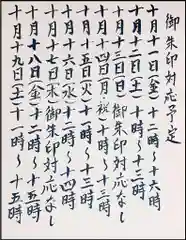 御朱印対応予定
十月十一日(金)十二時〜十六時
十月十二日(土)十時〜十三時
十月十三日(日)御朱印対応なし
十月十四日(月)(祝)十時〜十三時
十月十六日(水)十二時〜十四時
十月十七日(木)御朱印対応なし
十月十八日(金)十二時〜十五時
十月十九日(土)十一時〜十五時